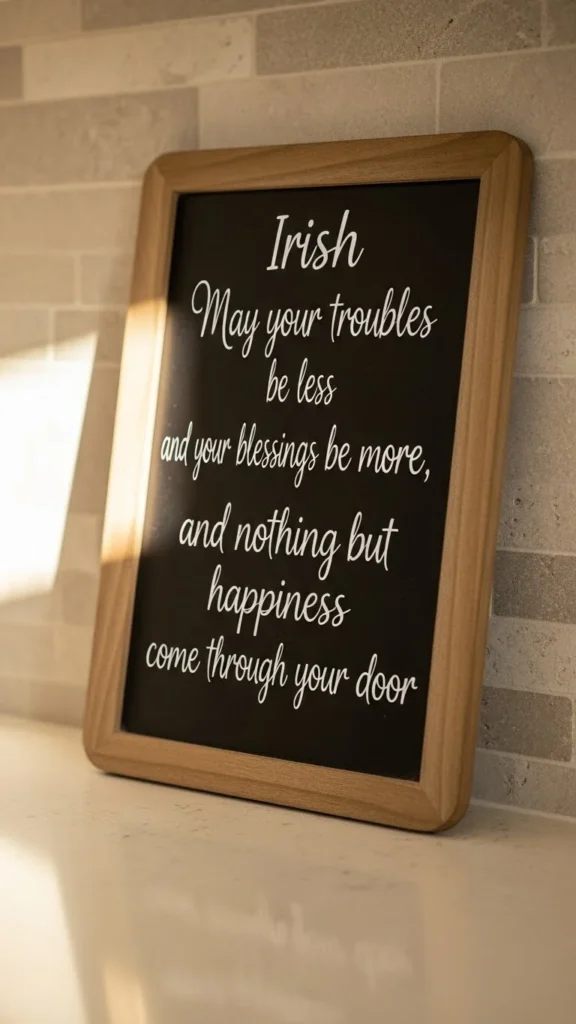 Irish
May your troubles
be less
and your blessings be more,
and nothing but
happiness
come through your door